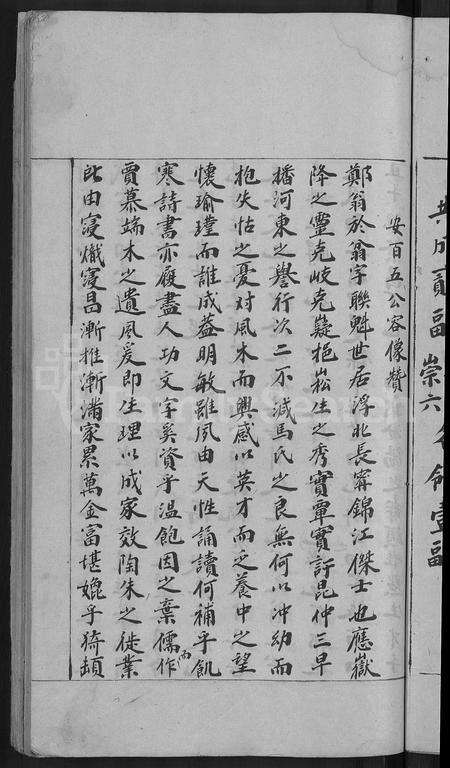 安百五公容像贊
鄭翁於翁字聯魁世居浮北長寧錦江傑士也應嶽
降之靈克岐克嶷挹崧生之秀實覃實訏昆仲三早
播河東之譽行次二不減馬氏之良無何以冲幼而
抱失怙之憂對風木而興感以英才而乏養中之望
懷瑜瑾而誰成蓋明敏雖夙由天性誦讀何補乎飢
寒詩書亦屐盡人功文字奚資乎溫飽因之棄儒而作
賈慕端木之遺風爰即生理以成家效陶朱之徙業
此由寖熾寖昌漸推漸滿家累萬金富堪媲乎猗頓